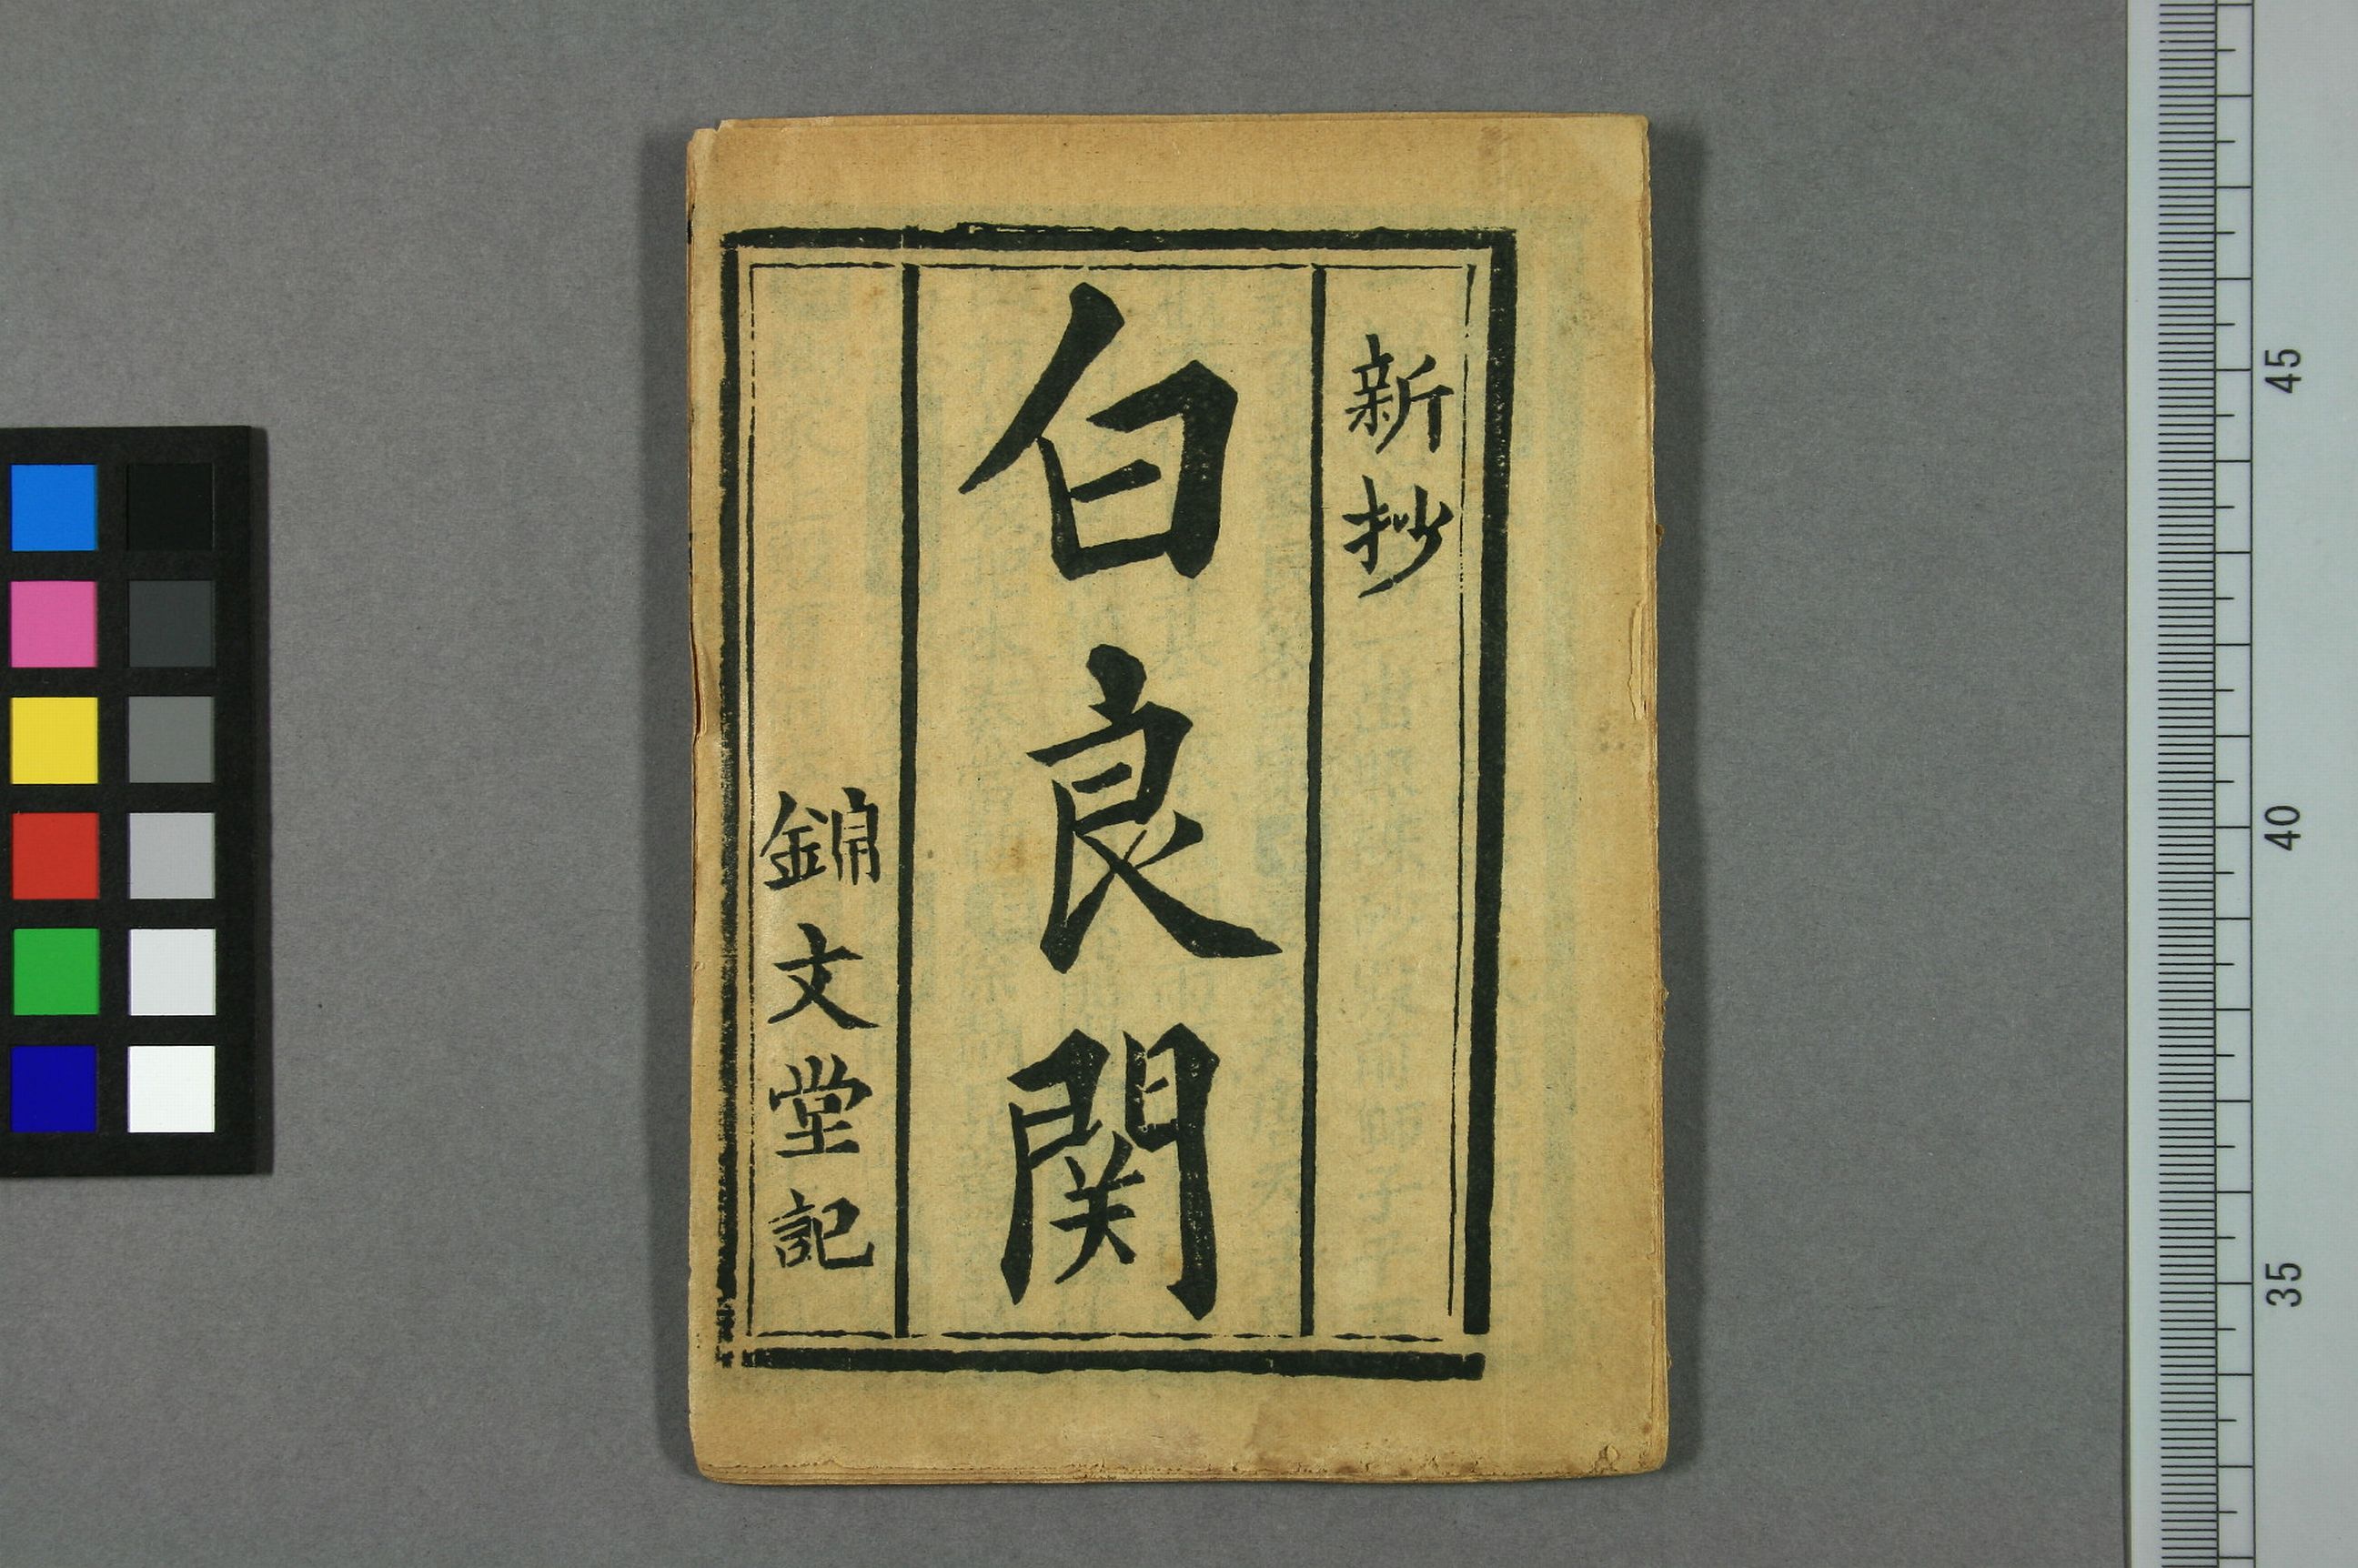 新抄
白良関
錦文堂記
45
40
35